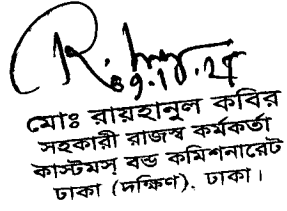 মোঃ রায়হানুল কবির
সহকারী রাজস্ব কর্মকর্তা
কাস্টমস্ বন্ড কমিশনারেট
ঢাকা (দক্ষিণ), ঢাকা।